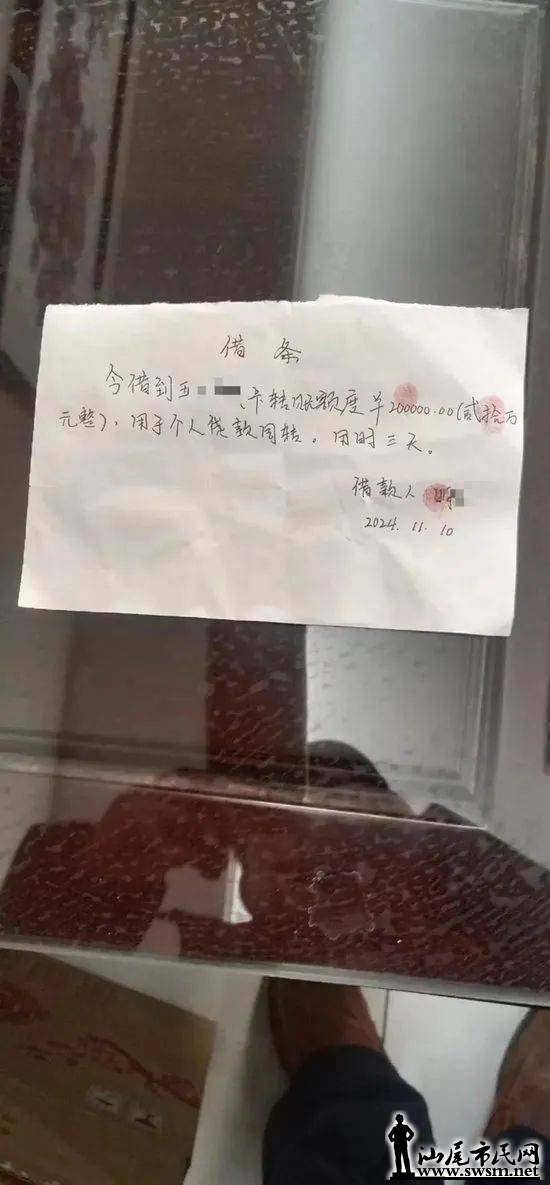 借条
今借到王 、卡转账额度¥200000.00(贰拾万
元整)，用于个人贷款周转。用时三天。
借款人
2024.11.10
汕尾市民网
www.swsm.net